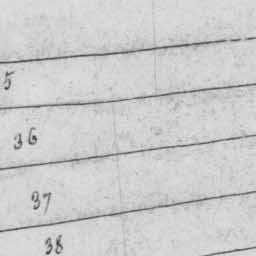 5
36
37
38